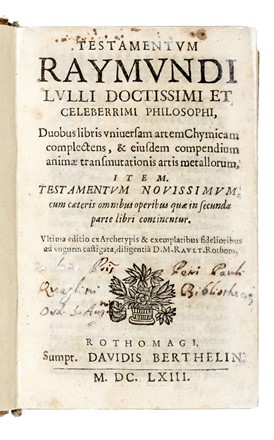 TESTAMENTVM
RAYMVNDI
LVLLI DOCTISSIMI ET
CELEBERRIMI PHILOSOPHI,
Duobus libris vniuersam artem Chymicam
complectens, & eiusdem compendium
animæ transmutationis artis metallorum,
ITEM.
TESTAMENTVM NOVISSIMVM,
cum cæteris omnibus operibus quæ in secunda
parte libri continentur.
Vltima editio ex Archetypis & exemplaribus fidelioribus
ad vnguem castigata, diligentiâ D.M. RAVLT. Rothom.
Petri Pauli
Bibliothecæ
ROTHOMAGI,
Sumpt. DAVIDIS BERTHELIN
M. DC. LXIII.